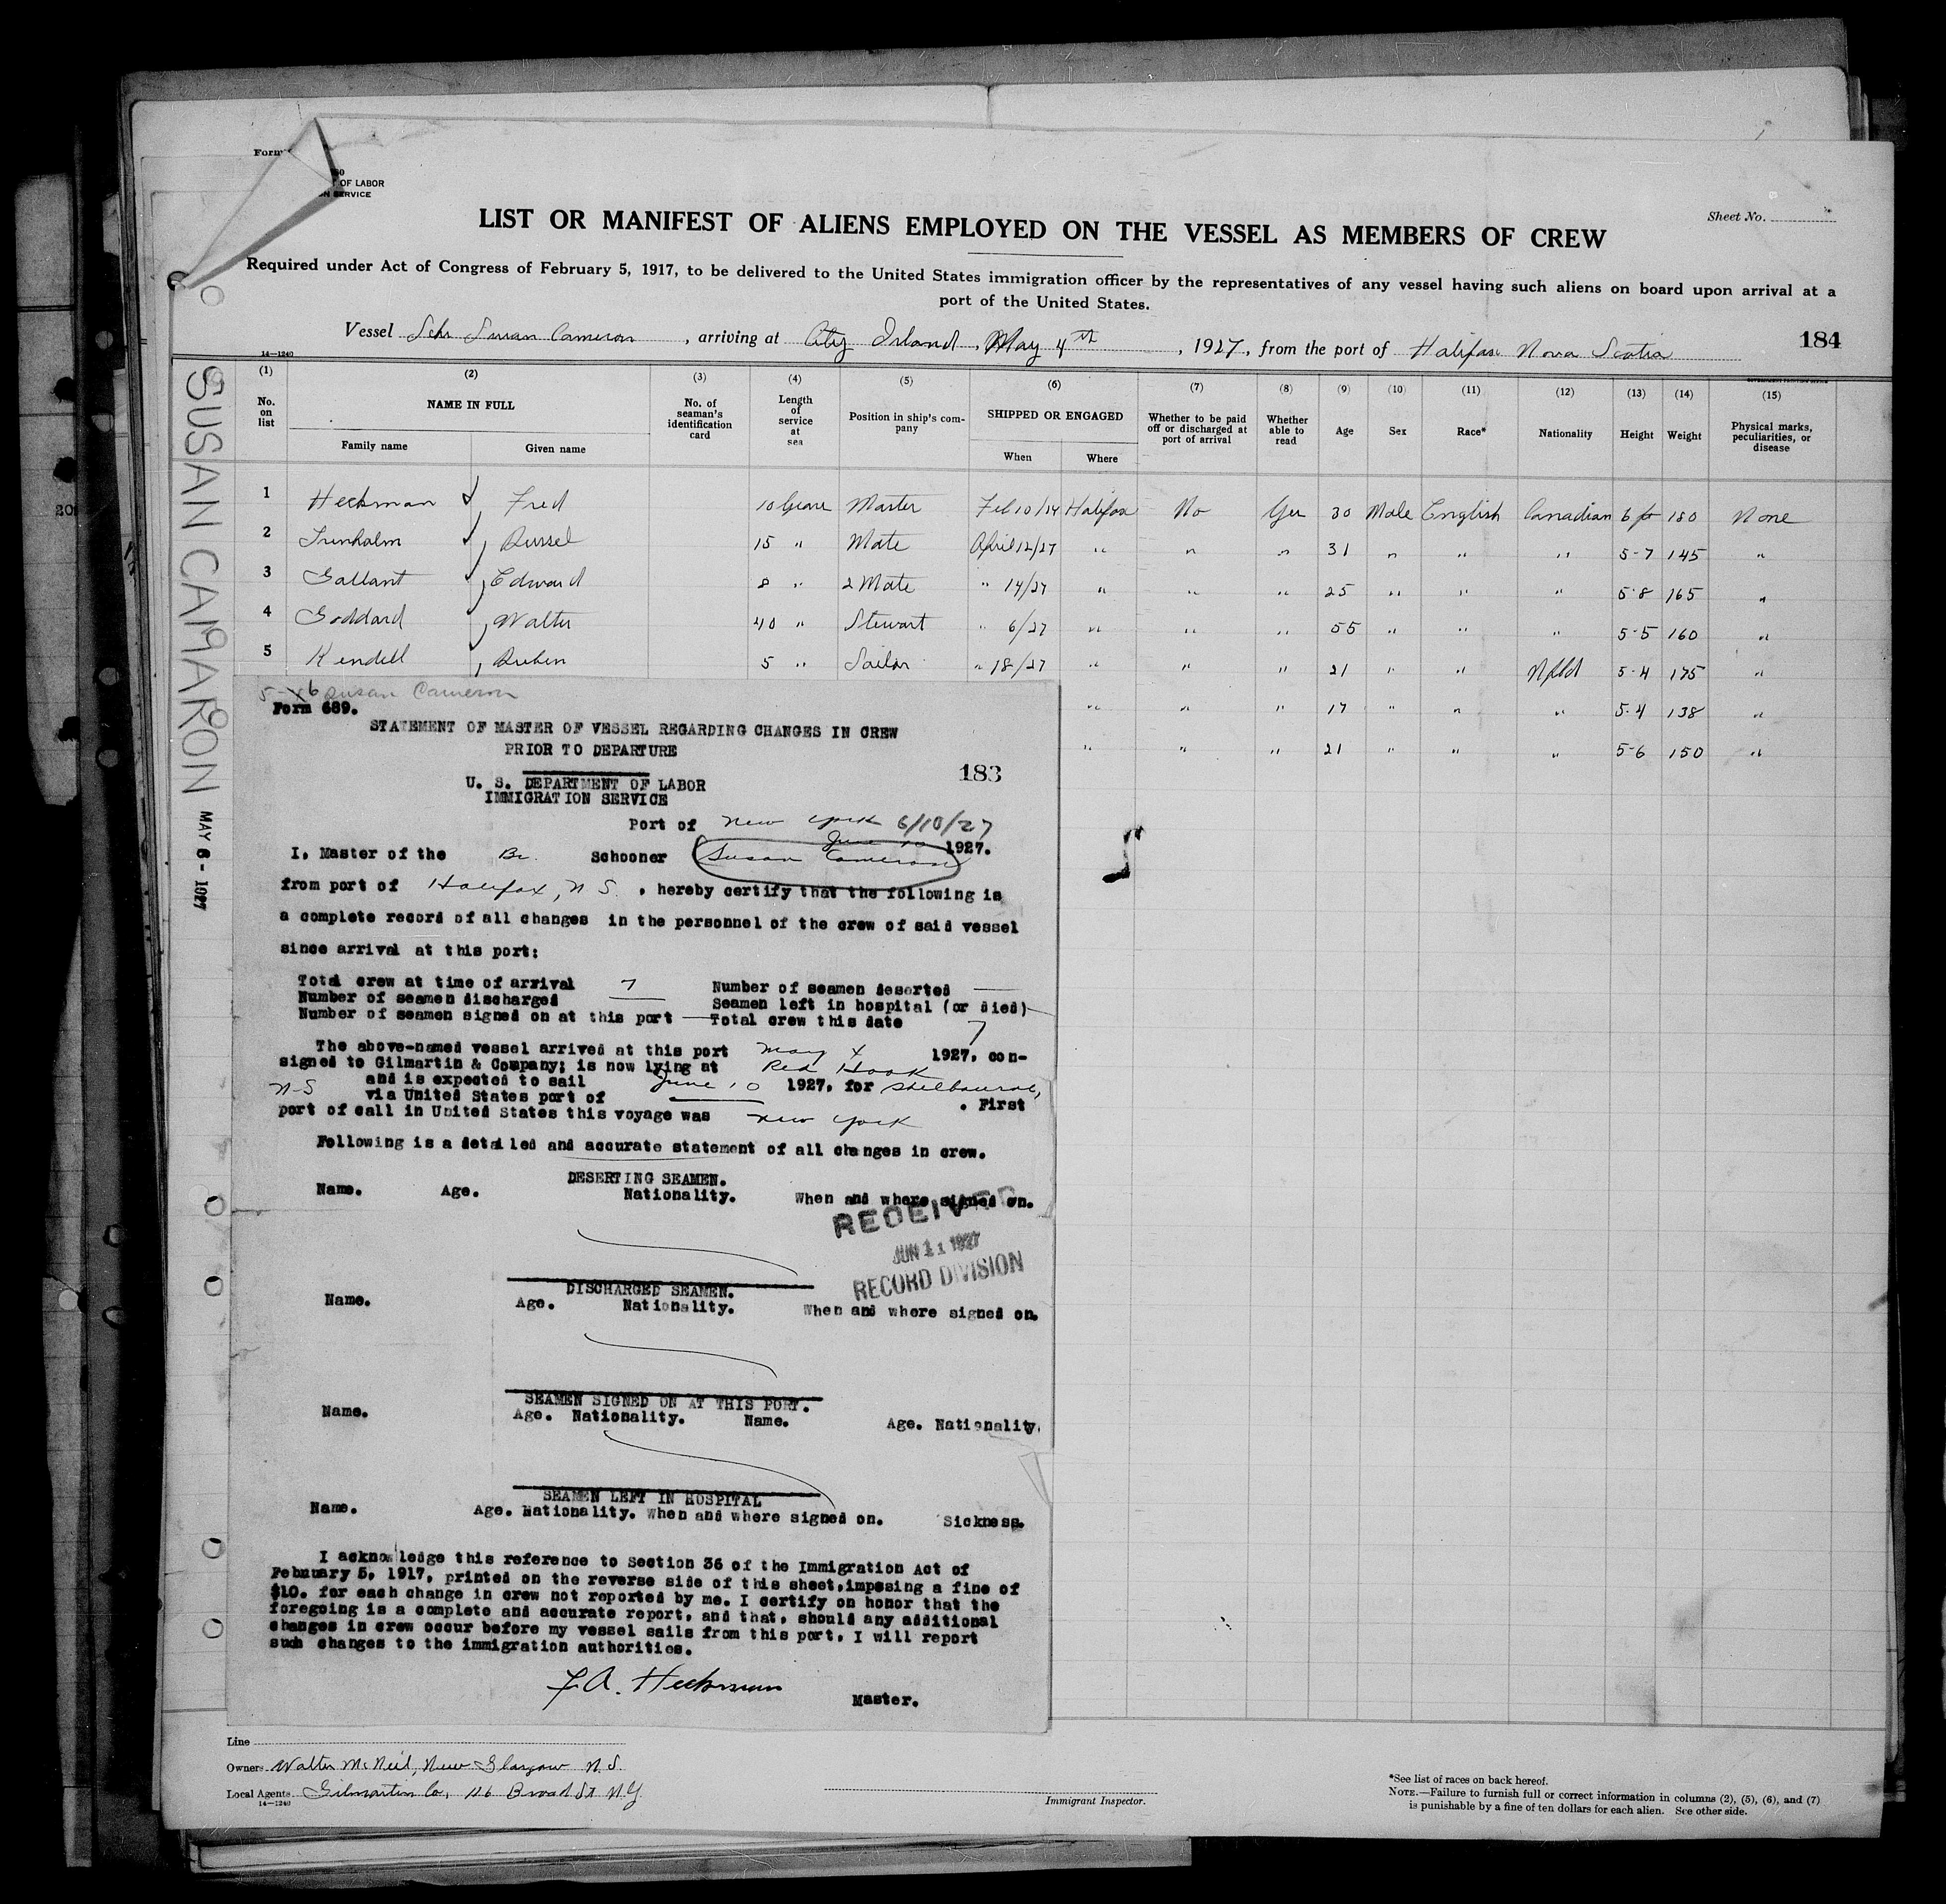 Form
OF LABOR
N SERVICE
Sheet No.
LIST OR MANIFEST OF ALIENS EMPLOYED ON THE VESSEL AS MEMBERS OF CREW
Required under Act of Congress of February 5, 1917, to be delivered to the United States immigration officer by the representatives of any vessel having such aliens on board upon arrival at a
port of the United States.
Vessel Schr Susan Cameron, arriving at City Island, May 4th, 1927, from the port of Halifax Nova Scotia
184
14—1240
(1) (2) (3) (4) (5) (6) (7) (8) (9) (10) (11) (12) (13) (14) (15)
No. on list
NAME IN FULL
Family name
Given name
No. of seaman's identification card
Length of service at sea
Position in ship's company
SHIPPED OR ENGAGED
When
Where
Whether to be paid off or discharged at port of arrival
Whether able to read
Age
Sex
Race*
Nationality
Height
Weight
Physical marks, peculiarities, or disease
1 Heckman Fred 10 years Master Feb 10/24 Halifax No Yes 30 Male English Canadian 6 ft 180 None
2 Trenholm Russel 15 " Mate April 12/27 " " " 31 " " " 5-7 145 "
3 Gallant Edward 8 " 2 Mate " 14/27 " " " 25 " " " 5-8 165 "
4 Goddard Walter 40 " Stewart " 6/27 " " " 55 " " " 5-5 160 "
5 Kendell Ruben 5 " Sailor " 18/27 " " " 21 " " Nfld 5-4 175 "
" " " 17 " " " 5-4 138 "
" " " 21 " " " 5-6 150 "
SUSAN CAMARON
MAY 6 - 1927
Susan Cameron
Form 689.
STATEMENT OF MASTER OF VESSEL REGARDING CHANGES IN CREW
PRIOR TO DEPARTURE
183
U. S. DEPARTMENT OF LABOR
IMMIGRATION SERVICE
Port of New York 6/10/27
June 10 1927.
I, Master of the Br. Schooner Susan Cameron
from port of Halifax, N S. , hereby certify that the following is
a complete record of all changes in the personnel of the crew of said vessel
since arrival at this port:
Total crew at time of arrival 7 Number of seamen deserted
Number of seamen discharged Seamen left in hospital (or died)
Number of seamen signed on at this port Total crew this date 7
The above-named vessel arrived at this port May 4 1927, con-
signed to Gilmartin & Company; is now lying at Red Hook
and is expected to sail June 10 1927. for Shelbourne,
N-S via United States port of . First
port of call in United States this voyage was New York
Following is a detailed and accurate statement of all changes in crew.
DESERTING SEAMEN.
Name. Age. Nationality. When and where signed on.
RECEIVED
JUN 11 1927
RECORD DIVISION
DISCHARGED SEAMEN.
Name. Age. Nationality. When and where signed on.
SEAMEN SIGNED ON AT THIS PORT.
Name. Age. Nationality. Name. Age. Nationality.
SEAMEN LEFT IN HOSPITAL
Name. Age. Nationality. When and where signed on. Sickness.
I acknowledge this reference to Section 36 of the Immigration Act of
February 5, 1917, printed on the reverse side of this sheet,imposing a fine of
$10. for each change in crew not reported by me. I certify on honor that the
foregoing is a complete and accurate report, and that, should any additional
changes in crew occur before my vessel sails from this port, I will report
such changes to the immigration authorities.
F A. Heckman
Master.
Line
Owners Walter McNeil, New Glasgow N.S.
Local Agents Gilmartin Co, 116 Broad St N.Y.
14—1240
Immigrant Inspector.
*See list of races on back hereof.
NOTE.—Failure to furnish full or correct information in columns (2), (5), (6), and (7)
is punishable by a fine of ten dollars for each alien. See other side.